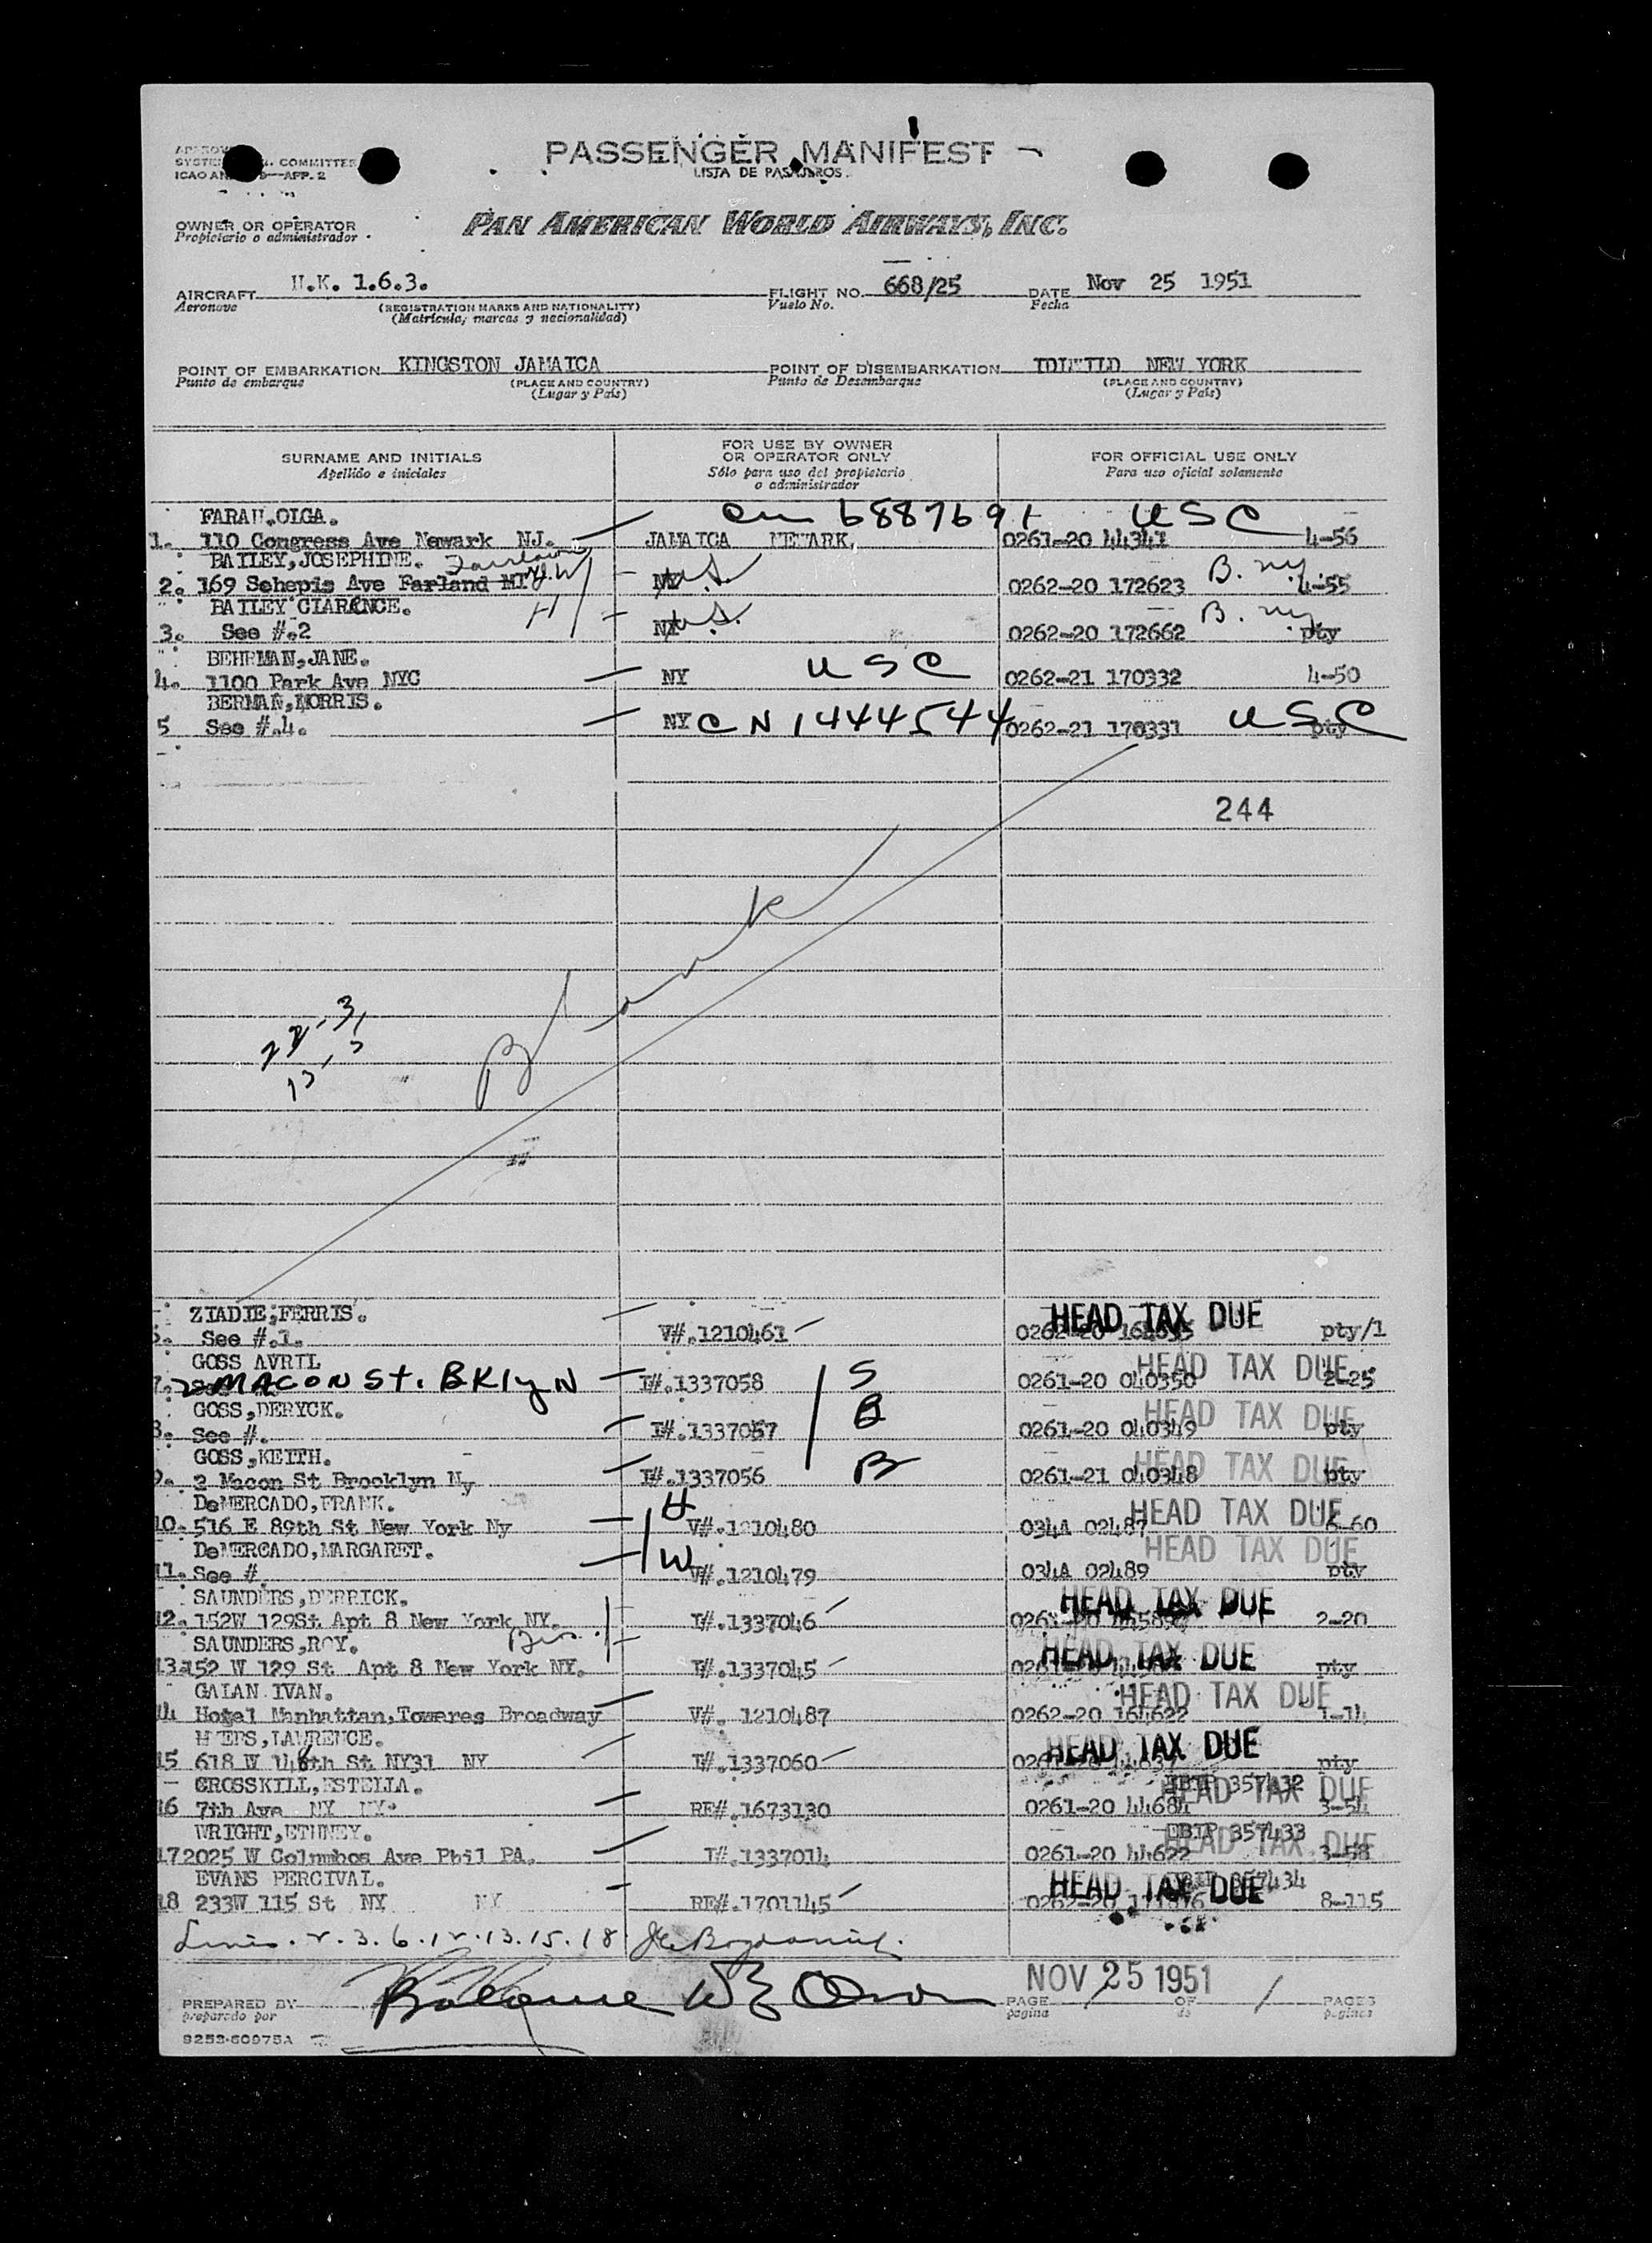 PASSENGER MANIFEST
LISTA DE PASAJEROS
COMMITTEE
APP. 2
OWNER OR OPERATOR
Propietario o administrador
PAN AMERICAN WORLD AIRWAYS, INC.
AIRCRAFT 1.6.3. FLIGHT NO. 668/25 DATE Nov 25 1951
Aeronave (REGISTRATION MARKS AND NATIONALITY) Vuelo No. Fecha
(Matrícula, marcas y nacionalidad)
POINT OF EMBARKATION KINGSTON JAMAICA POINT OF DISEMBARKATION NEW YORK
Punto de embarque (PLACE AND COUNTRY) Punto de Desembarque (PLACE AND COUNTRY)
(Lugar y País) (Lugar y País)
SURNAME AND INITIALS FOR USE BY OWNER OR OPERATOR ONLY FOR OFFICIAL USE ONLY
Apellido e iniciales Sólo para uso del propietario o administrador Para uso oficial solamente
FARAH.OLGA. 6887691 USC
1. 110 Congress Ave Newark NJ. JAMAICA NEWARK 0261-20 44341 4-56
BAILEY,JOSEPHINE.
2. 169 Sehepis Ave Farland U.S. 0262-20 172623 B. ny 4-55
BAILEY CLARENCE. H
3. See #.2 U.S. 0262-20 172662 B. ny pty
BEHRMAN,JANE.
4. 1100 Park Ave NYC NY USC 0262-21 170332 4-50
BERMAN,MORRIS.
5 See #.4. NY CN 1444544 0262-21 170331 USC pty
244
Blank
ZIADIE,FERRIS. HEAD TAX DUE
See #.1. V#.1210461 pty/1
GOSS AVRIL HEAD TAX DUE
7. 2 MACON St. BKlyN I#.1337058 S 0261-20 040350 2-25
GOSS,DERYCK. HEAD TAX DUE
See #. I#.1337057 B 0261-20 040349 pty
GOSS,KEITH. HEAD TAX DUE
9. 2 Macon St Brooklyn Ny I#.1337056 B 0261-21 040348 pty
DeMERCADO,FRANK. H HEAD TAX DUE
10. 516 E 89th St New York Ny V#.1210480 034A 02487 6-60
DeMERCADO,MARGARET. W HEAD TAX DUE
11. See # V#.1210479 034A 02489 pty
SAUNDERS,DERRICK. HEAD TAX DUE
12. 152W 129St Apt 8 New York NY. I#.1337046 2-20
SAUNDERS,ROY. HEAD TAX DUE
13. 152 W 129 St Apt 8 New York NY. I#.1337045 pty
GALAN IVAN. HEAD TAX DUE
14 Hotel Manhattan,Toweres Broadway V#. 1210487 0262-20 164622 1-14
LAWRENCE. HEAD TAX DUE
15 618 W 148th St NY31 NY I#.1337060 pty
CROSSKILL,ESTELLA. 357432 HEAD TAX DUE
16 7th Ave NY NY. RE#.1673130 0261-20 44684 3-54
WRIGHT,ETHNEY. 357433 HEAD TAX DUE
17 2025 W Colmbos Ave Phil PA. I#.1337014 0261-20 44622 3-58
EVANS PERCIVAL. HEAD TAX DUE
18 233W 115 St NY NY RE#.1701145 8-115
Lines. 2. 3. 6. 12. 13. 15. 18
NOV 25 1951
PREPARED BY PAGE OF 1 PAGES
preparado por pagina de paginas
9253-60975A